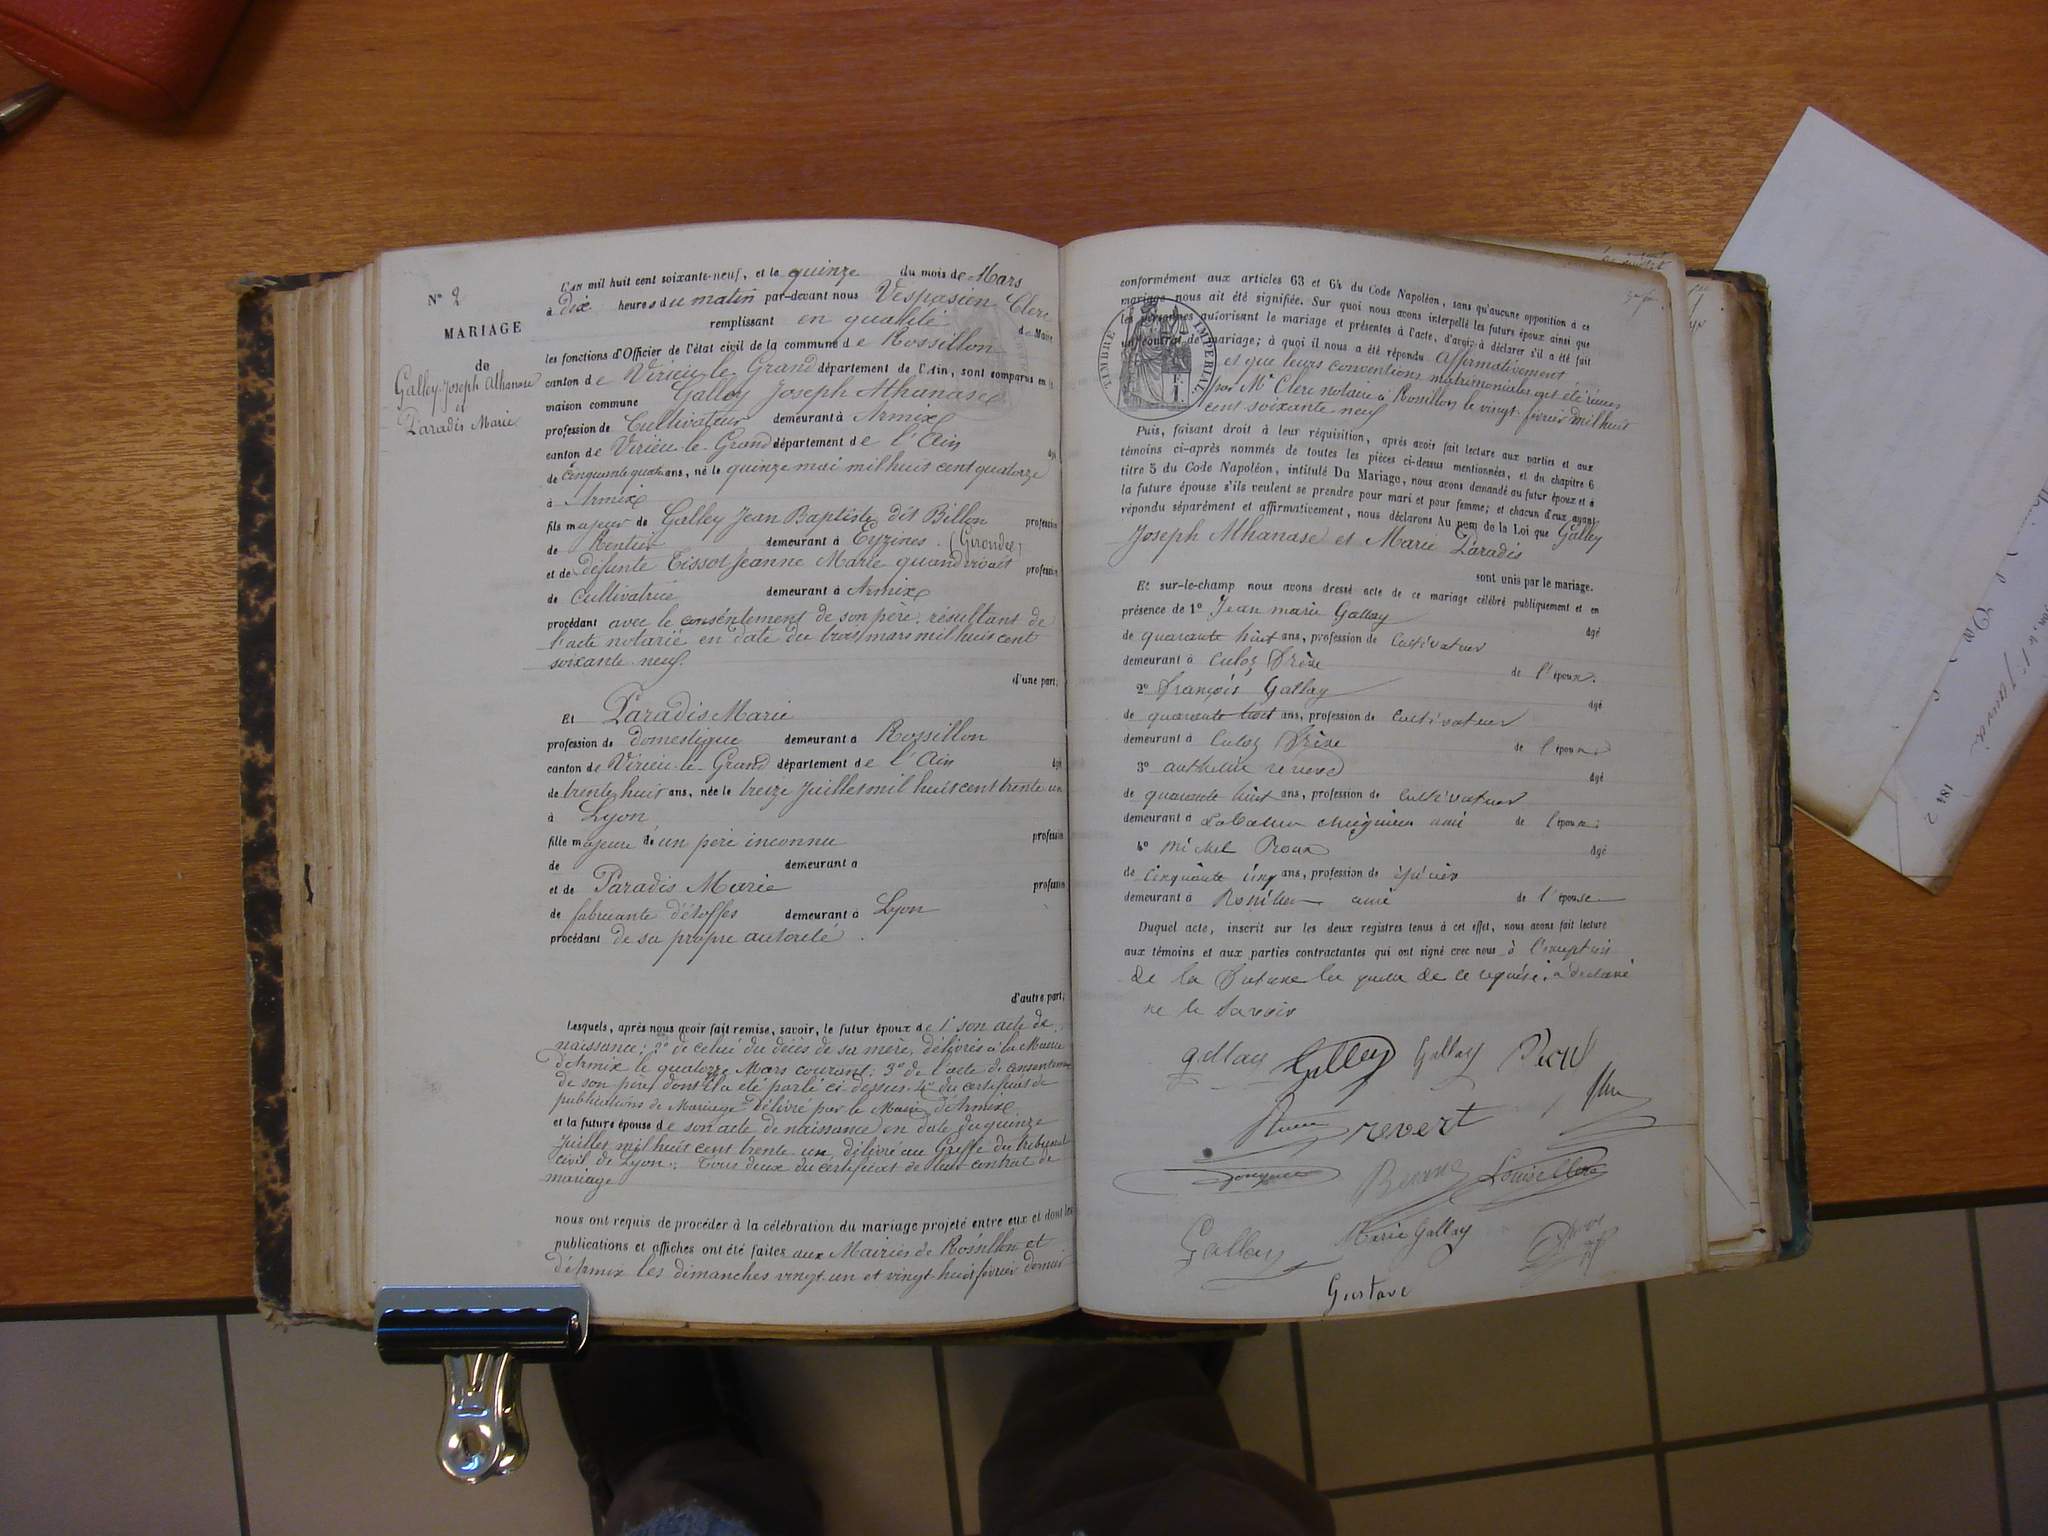 N° 2
MARIAGE
de
Galley Joseph Athanase
et
Paradis Marie
L'AN mil huit cent soixante-neuf, et le quinze du mois de Mars
à dix heures du matin par-devant nous Vespasien Clerc
remplissant en qualité de Maire
les fonctions d'Officier de l'état civil de la commune de Rossillon
canton de Virieu le Grand département de l'Ain, sont comparus en la
maison commune Galley Joseph Athanase
profession de Cultivateur demeurant à Armix
canton de Virieu-le-Grand département de l'Ain âgé
de cinquante quatre ans, né le quinze mai mil huit cent quatorze
à Armix
fils majeur de Galley Jean Baptiste dit Billon profession
de Rentier demeurant à Eyzines (Gironde)
et de defunte Tissot Jeanne Marie quand vivait profession
de Cultivatrice demeurant à Armix
procédant avec le consentement de son père résultant de
l'acte notarié en date du trois mars mil huit cent
soixante neuf.
d'une part;
Et Paradis Marie
profession de domestique demeurant à Rossillon
canton de Virieu-le-Grand département de l'Ain âgé
de trente huit ans, née le treize Juillet mil huit cent trente un
à Lyon
fille majeure d'un père inconnu profession
de demeurant à
et de Paradis Marie profession
de fabricante d'étoffes demeurant à Lyon
procédant de sa propre autorité.
d'autre part;
Lesquels, après nous avoir fait remise, savoir, le futur époux de 1° son acte de
naissance; 2° de celui du décès de sa mère, délivrés à la Mairie
d'Armix le quatorze Mars courant; 3° de l'acte de consentement
de son père, dont il a été parlé ci dessus. 4° du certificat de
publications de Mariage délivré par le Maire d'Armix.
et la future épouse de son acte de naissance en date du quinze
Juillet mil huit cent trente un, délivré au Greffe du tribunal
civil de Lyon. Tous deux du certificat de leur contrat de
mariage
nous ont requis de procéder à la célébration du mariage projeté entre eux et dont les
publications et affiches ont été faites aux Mairies de Rossillon et
d'Armix les dimanches vingt un et vingt huit février dernier
conformément aux articles 63 et 64 du Code Napoléon, sans qu'aucune opposition à ce
mariage nous ait été signifiée. Sur quoi nous avons interpellé les futurs époux ainsi que
les personnes autorisant le mariage et présentes à l'acte, d'avoir à déclarer s'il a été fait
un contrat de mariage; à quoi il nous a été répondu Affirmativement
et que leurs conventions matrimoniales ont été reçues
par Me Clerc notaire à Rossillon le vingt février mil huit
cent soixante neuf
TIMBRE IMPERIAL
1 F.
Puis, faisant droit à leur réquisition, après avoir fait lecture aux parties et aux
témoins ci-après nommés de toutes les pièces ci-dessus mentionnées, et du chapitre 6
titre 5 du Code Napoléon, intitulé Du Mariage, nous avons demandé au futur époux et à
la future épouse s'ils veulent se prendre pour mari et pour femme; et chacun d'eux ayant
répondu séparément et affirmativement, nous déclarons Au nom de la Loi que Galley
Joseph Athanase et Marie Paradis
sont unis par le mariage.
Et sur-le-champ nous avons dressé acte de ce mariage célébré publiquement et en
présence de 1° Jean marie Gallay âgé
de quarante huit ans, profession de Cultivateur
demeurant à Culoz Frère de l'époux.
2° François Gallay âgé
de quarante huit ans, profession de Cultivateur
demeurant à Culoz Frère de l'époux;
3° anthelme revert âgé
de quarante huit ans, profession de Cultivateur
demeurant à ami de l'époux;
4° Michel Proux âgé
de Cinquante cinq ans, profession de épicier
demeurant à Rossillon ami de l'épouse
Duquel acte, inscrit sur les deux registres tenus à cet effet, nous avons fait lecture
aux témoins et aux parties contractantes qui ont signé avec nous à l'exception
de la Future la quelle de ce requise a déclaré
ne le savoir
gallay Galley Gallay
revert
Louise Clerc
Galley Marie Gallay
Gustave
1842